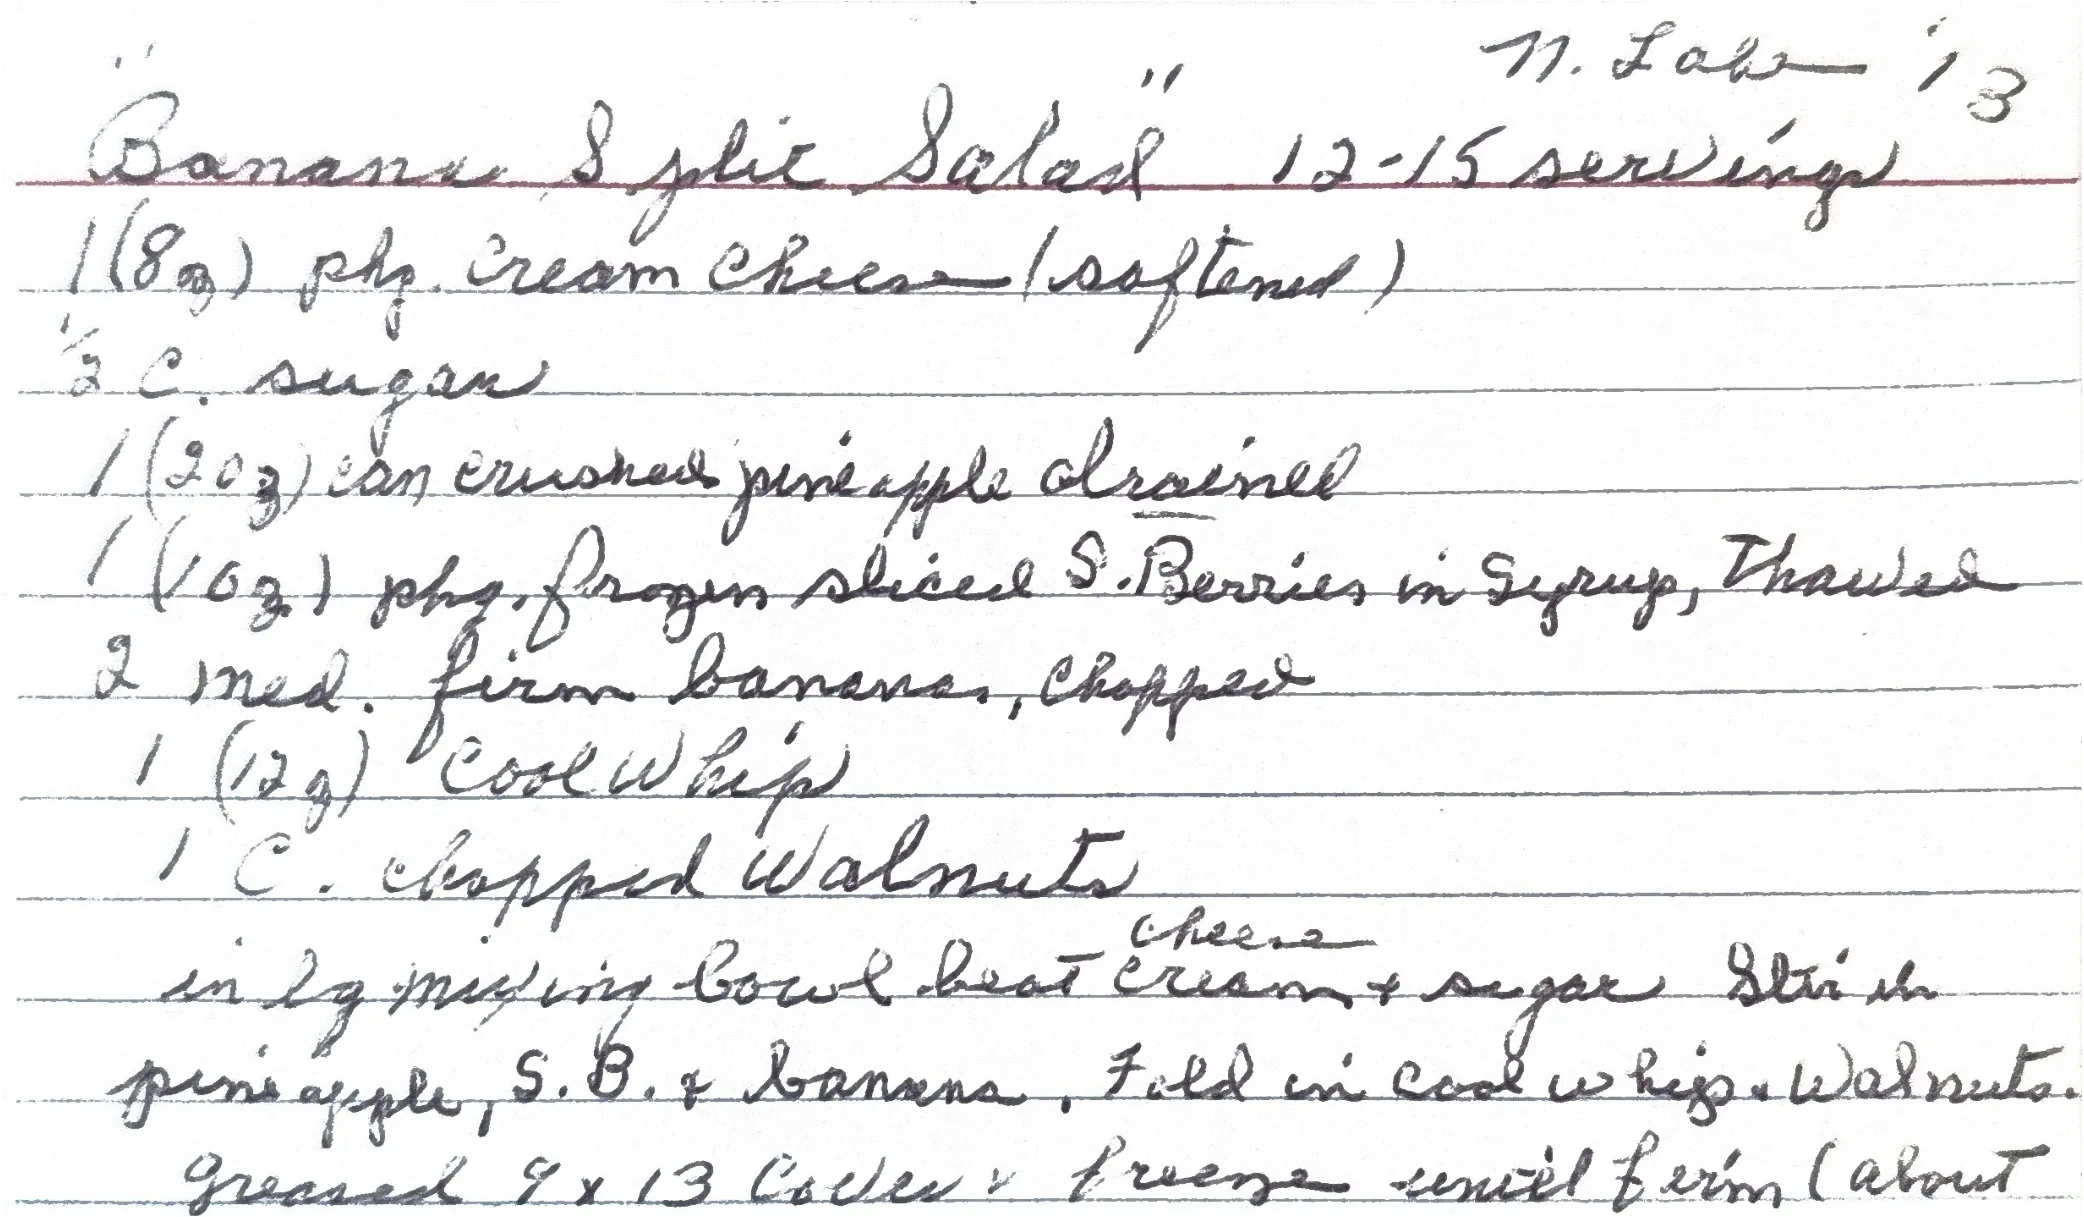 N. Lake '13
"Banana Split Salad" 12-15 servings
1 (8 oz) pkg. cream cheese (softened)
1/2 C. sugar
1 (20z) can crushed pineapple drained
1 (10z) pkg. frozen sliced S. Berries in Syrup, Thawed
2 med. firm bananas, chopped
1 (12z) Cool Whip
1 C. chopped Walnuts
cheese
in lg mixing bowl beat cream + sugar Stir in
pineapple, S.B. & banana, Fold in cool whip & Walnuts.
greased 9 x 13 Cover & freeze until firm (about